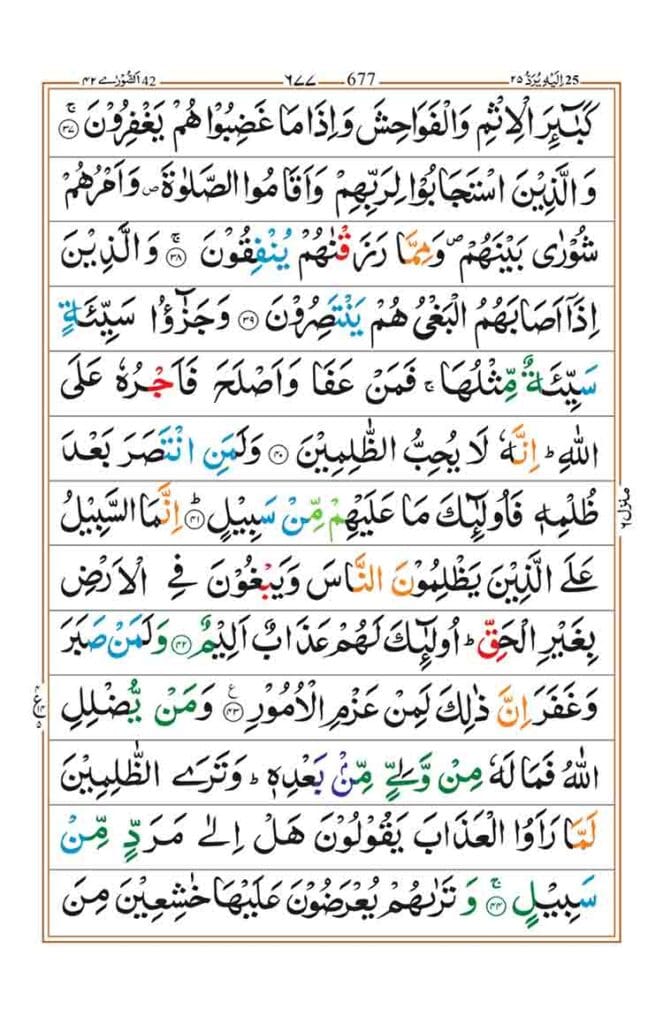 اَلشُّوْرٰى ٤٢ 42 ٦٧٧ 677 اِلَيْهِ يُرَدُّ ٢٥ 25
كَبٰٓئِرَ الْاِثْمِ وَالْفَوَاحِشَ وَاِذَا مَا غَضِبُوْا هُمْ يَغْفِرُوْنَ ۚ ﴿٣٧﴾
وَالَّذِيْنَ اسْتَجَابُوْا لِرَبِّهِمْ وَاَقَامُوا الصَّلٰوةَ ۪ وَاَمْرُهُمْ
شُوْرٰى بَيْنَهُمْ ۪ وَمِمَّا رَزَقْنٰهُمْ يُنْفِقُوْنَ ۚ ﴿٣٨﴾ وَالَّذِيْنَ
اِذَاۤ اَصَابَهُمُ الْبَغْيُ هُمْ يَنْتَصِرُوْنَ ﴿٣٩﴾ وَجَزٰٓؤُا سَيِّئَةٍ
سَيِّئَةٌ مِّثْلُهَا ۚ فَمَنْ عَفَا وَاَصْلَحَ فَاَجْرُهٗ عَلَى
اللّٰهِ ؕ اِنَّهٗ لَا يُحِبُّ الظّٰلِمِيْنَ ﴿٤٠﴾ وَلَمَنِ انْتَصَرَ بَعْدَ
ظُلْمِهٖ فَاُولٰٓئِكَ مَا عَلَيْهِمْ مِّنْ سَبِيْلٍ ؕ ﴿٤١﴾ اِنَّمَا السَّبِيْلُ
عَلَى الَّذِيْنَ يَظْلِمُوْنَ النَّاسَ وَيَبْغُوْنَ فِي الْاَرْضِ
بِغَيْرِ الْحَقِّ ؕ اُولٰٓئِكَ لَهُمْ عَذَابٌ اَلِيْمٌ ﴿٤٢﴾ وَلَمَنْ صَبَرَ
وَغَفَرَ اِنَّ ذٰلِكَ لَمِنْ عَزْمِ الْاُمُوْرِ ࣖ ﴿٤٣﴾ وَمَنْ يُّضْلِلِ
اللّٰهُ فَمَا لَهٗ مِنْ وَّلِيٍّ مِّنْۢ بَعْدِهٖ ؕ وَتَرَى الظّٰلِمِيْنَ
لَمَّا رَاَوُا الْعَذَابَ يَقُوْلُوْنَ هَلْ اِلٰى مَرَدٍّ مِّنْ
سَبِيْلٍ ۚ ﴿٤٤﴾ وَتَرٰىهُمْ يُعْرَضُوْنَ عَلَيْهَا خٰشِعِيْنَ مِنَ
منزل ٦